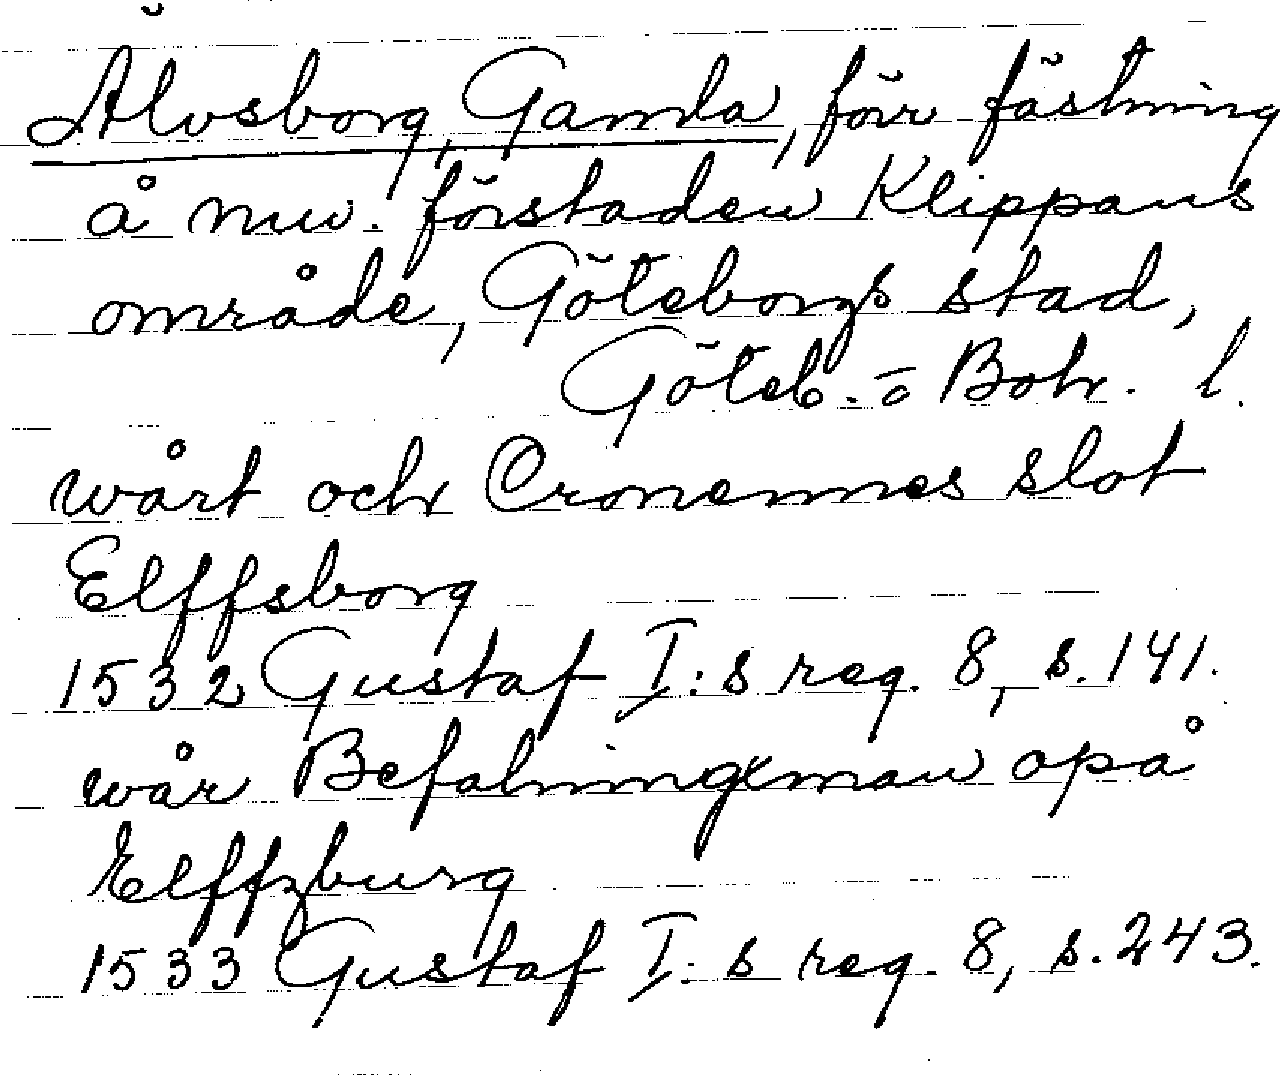 Älvsborg, Gamla, förr fästning
å nuv. förstaden Klippans
område, Göteborgs stad,
Göteb. o Boh. l.
wårt och Cronennes slot
Elffsborg
1532 Gustaf I:s reg. 8, s. 141.
wår Befalningxman opå
Elffzburg
1533 Gustaf I:s reg. 8, s. 243.